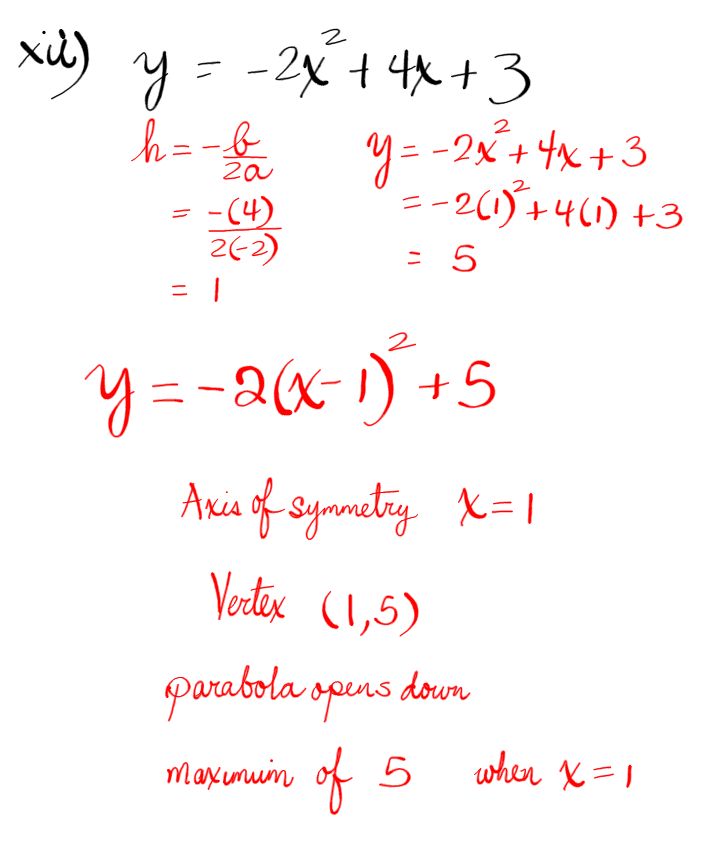 xii) y = -2x² + 4x + 3
h = -b/2a
= -(4)/2(-2)
= 1
y = -2x² + 4x + 3
= -2(1)² + 4(1) + 3
= 5
y = -2(x-1)² + 5
Axis of symmetry x = 1
Vertex (1,5)
parabola opens down
maximum of 5 when x = 1